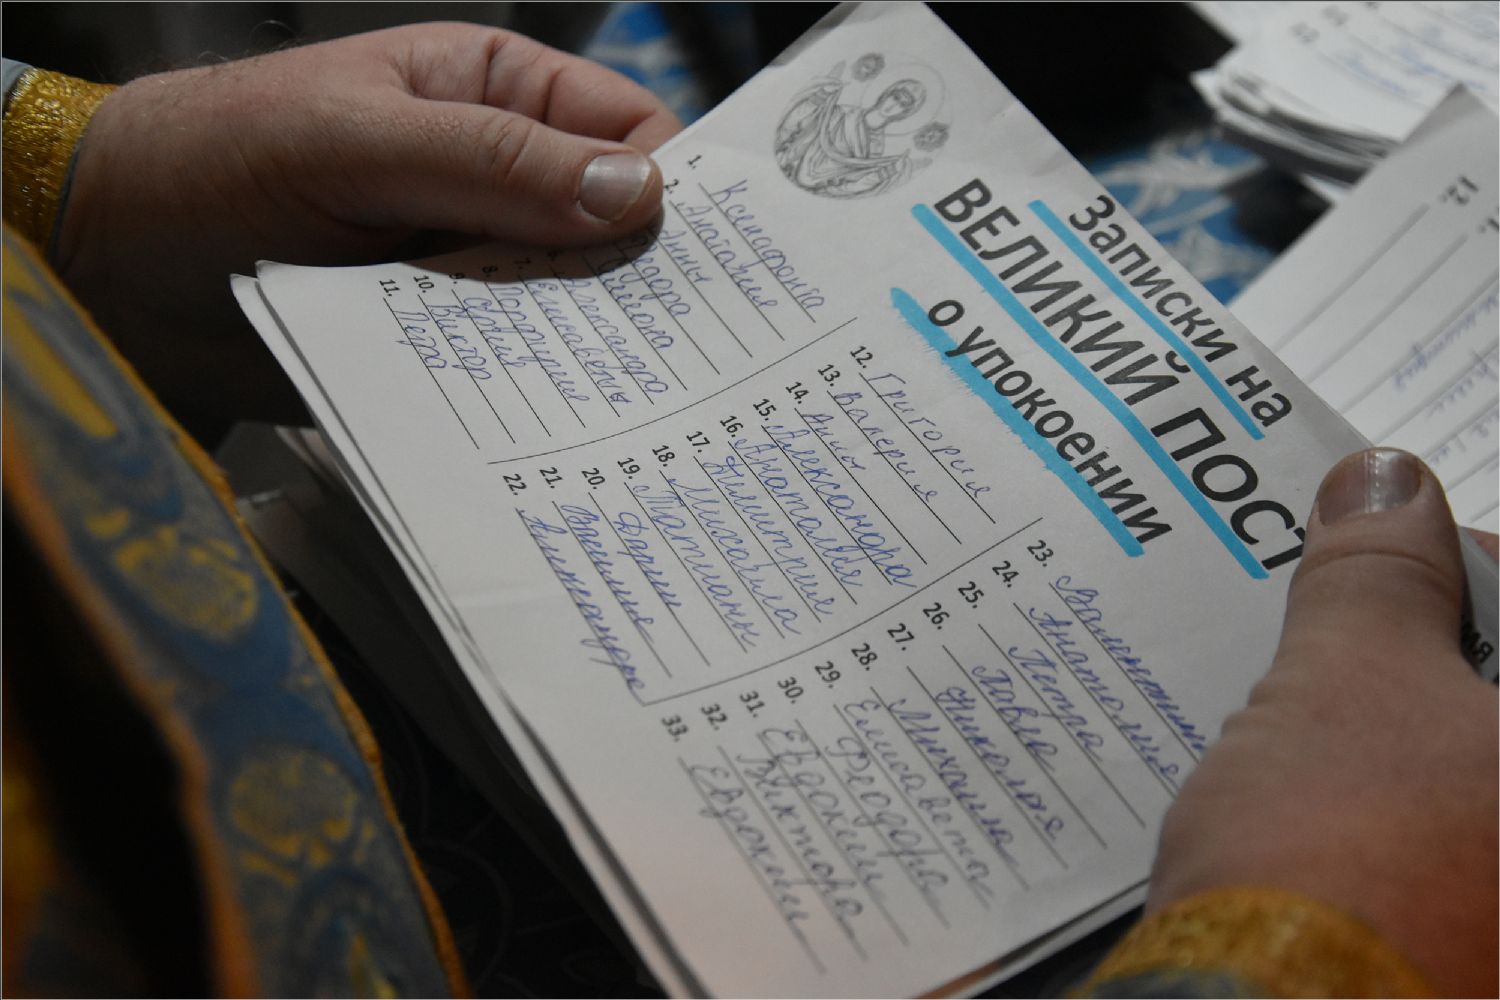 Записки на
ВЕЛИКИЙ ПОСТ
о упокоении
1. Ксенофонта
2. Анатолия
Анны
Федора
Симеона
6. Александра
7. Елисаветы
8.
9.
10. Виктор
11. Петра
12. Григория
13. Валерия
14. Анны
15. Александра
16. Анатолия
17. Димитрия
18. Михаила
19. Татианы
20. Дарии
21. Василия
22. Александра
23. Валентины
24. Анатолия
25. Петра
26. Павла
27. Николая
28. Михаила
29. Елисавета
30. Феодора
31. Евдокии
32. Виктора
33. Евдокии
12.